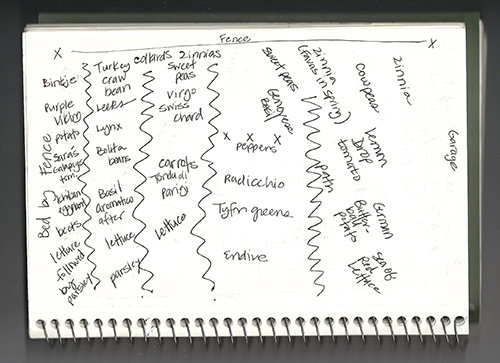 Fence
x x
Bed by Fence
Bintje
Purple
Viking
potato
Sara's
Galapagos
tom.
Ichiban
eggplant
beets
lettuce
followed
by
parsley
Turkey
craw
bean
leeks
Lynx
Bolita
beans
Basil
aromatico
after
lettuce
parsley
collards
zinnias
sweet
peas
Virgo
swiss
chard
carrots
Tonda di
parigi
lettuce
sweet peas
Genovese
Basil
x x x
peppers
Radicchio
Tyfon greens
Endive
zinnia
(favas in spring)
path
cowpeas
Lemon
Drop
tomato
German
Butter-
ball
potato
sea of
Red
lettuce
zinnia
Garage